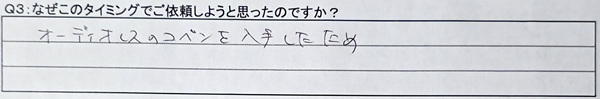 Q3:なぜこのタイミングでご依頼しようと思ったのですか?
オーディオレスのコペンを入手したため